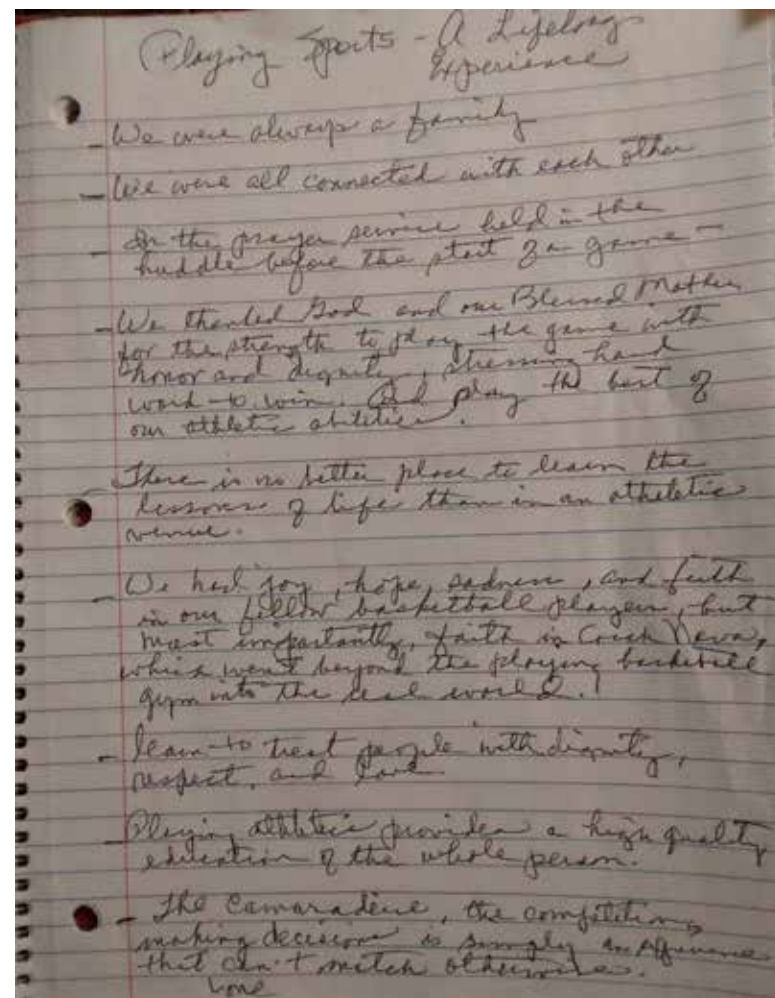 Playing Sports - A Lifelong
Experience
- We were always a family
- We were all connected with each other
- In the prayer service held in the
huddle before the start of a game -
- We thanked God and our Blessed Mother
for the strength to play the game with
honor and dignity, stressing hard
work to win. And play the best of
our athletic abilities.
- There is no better place to learn the
lessons of life than in an atheletic
venue.
- We had joy, hope, sadness, and faith
in our fellow basketball players, but
most importantly, faith in Coach
which went beyond the playing basketball
gym into the real world.!
- learn to treat people with dignity,
respect, and love
- Playing athletics provides a high quality
education of the whole person.
- The camaraderie, the competition,
making decisions is simply an
that can't match otherwise.